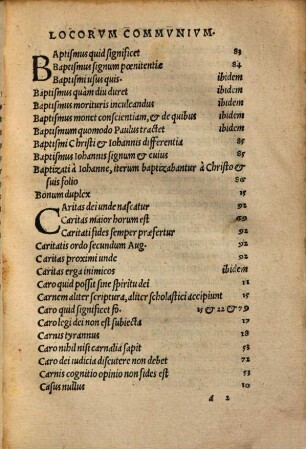 LOCORVM COMMVNIVM.
BAptismus quid significet 83
Baptismus signum pœnitentiæ 84
Baptismi usus quis. ibidem
Baptismus quàm diu duret ibidem
Baptismus morituris inculcandus ibidem
Baptismus monet conscientiam, & de quibus ibidem
Baptismum quomodo Paulus tractet ibidem
Baptismi Christi & Iohannis differentia 85
Baptismus Iohannis signum & cuius 85
Baptizati à Iohanne, iterum baptizabantur à Christo &
suis folio
Bonum duplex 15
CAritas dei unde nascatur 92
Caritas maior horum est 92
Caritati fides semper præfertur 92
Caritatis ordo secundum Aug. 92
Caritas proximi unde 92
Caritas erga inimicos ibidem
Caro quid possit sine spiritu dei 12
Carnem aliter scriptura, aliter scholastici accipiunt 15
Caro quid significet fo. 15 & 22 & 79
Caro legi dei non est subiecta 17
Carnis tyrannus 18
Caro nihil nisi carnalia sapit 52
Caro dei iudicia discutere non debet 52
Carnis cognitio opinio non fides est 53
Casus nullus 10
d 2